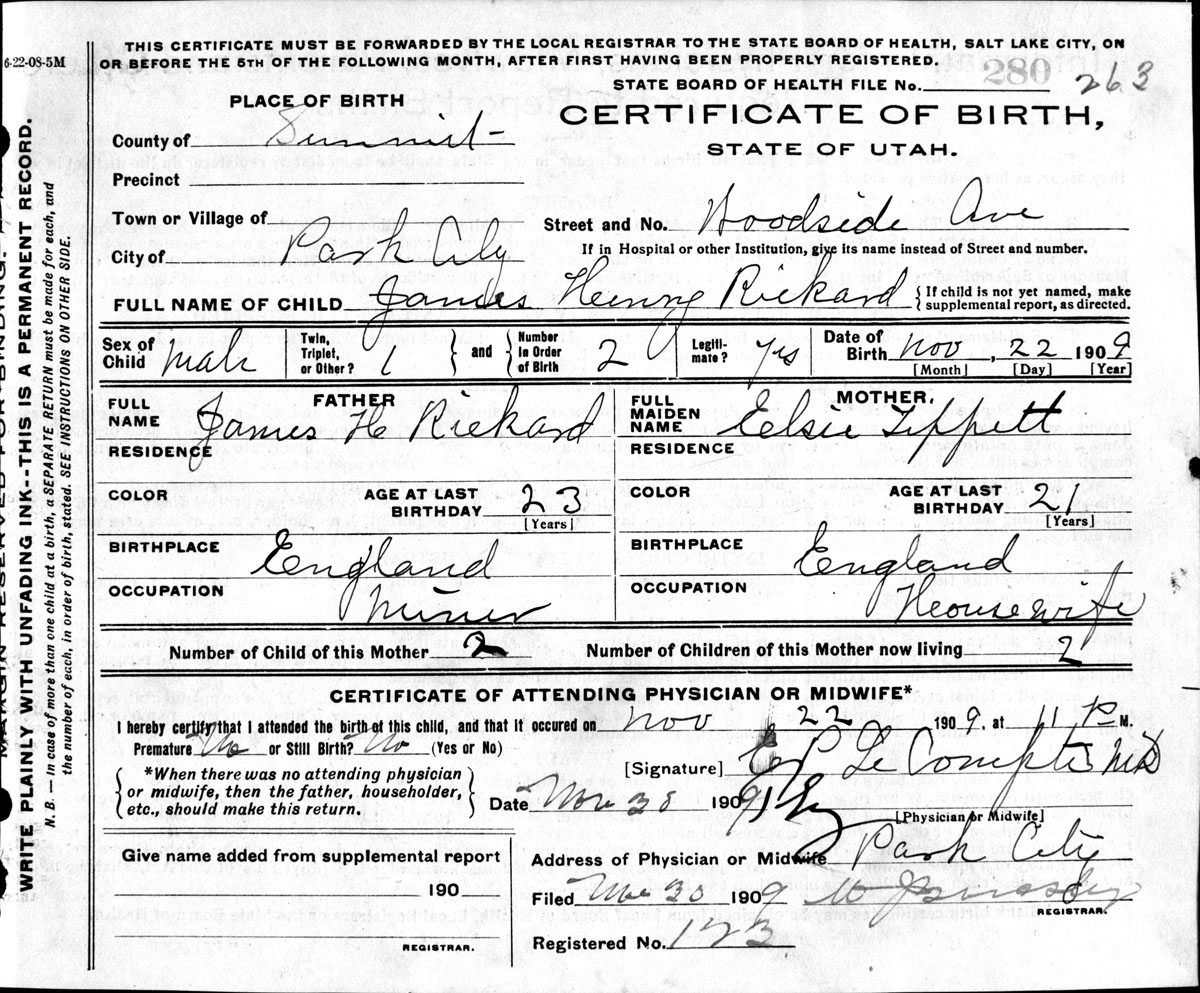 6-22-08-5M
THIS CERTIFICATE MUST BE FORWARDED BY THE LOCAL REGISTRAR TO THE STATE BOARD OF HEALTH, SALT LAKE CITY, ON
OR BEFORE THE 5TH OF THE FOLLOWING MONTH, AFTER FIRST HAVING BEEN PROPERLY REGISTERED.
280
STATE BOARD OF HEALTH FILE No. 263
PLACE OF BIRTH
CERTIFICATE OF BIRTH,
STATE OF UTAH.
County of Summit
Precinct
Town or Village of
Street and No. Woodside Ave
City of Park City
If in Hospital or other Institution, give its name instead of Street and number.
FULL NAME OF CHILD James Henry Rickard { If child is not yet named, make supplemental report, as directed.
Sex of Child Male Twin, Triplet, or Other? 1 } and { Number in Order of Birth 2 Legiti-mate? Yes Date of Birth Nov, 22 1909
[Month] [Day] [Year]
FATHER
FULL NAME James H Rickard
RESIDENCE
COLOR
AGE AT LAST BIRTHDAY 23
[Years]
BIRTHPLACE England
OCCUPATION Miner
MOTHER,
FULL MAIDEN NAME Elsie Tippett
RESIDENCE
COLOR
AGE AT LAST BIRTHDAY 21
[Years]
BIRTHPLACE England
OCCUPATION Housewife
Number of Child of this Mother 2 Number of Children of this Mother now living 2
CERTIFICATE OF ATTENDING PHYSICIAN OR MIDWIFE*
I hereby certify that I attended the birth of this child, and that it occured on Nov 22 1909. at 11 P M.
Premature No or Still Birth? No (Yes or No)
[Signature] E P Le Compte MD
{ *When there was no attending physician
or midwife, then the father, householder,
etc., should make this return. }
Date Nov 30 1909
[Physician or Midwife]
Give name added from supplemental report
190
REGISTRAR.
Address of Physician or Midwife Park City
Filed Nov 30 1909
REGISTRAR.
Registered No. 123
MARGIN RESERVED FOR BINDING.
WRITE PLAINLY WITH UNFADING INK--THIS IS A PERMANENT RECORD.
N. B. — In case of more than one child at a birth, a SEPARATE RETURN must be made for each, and
the number of each, in order of birth, stated. SEE INSTRUCTIONS ON OTHER SIDE.